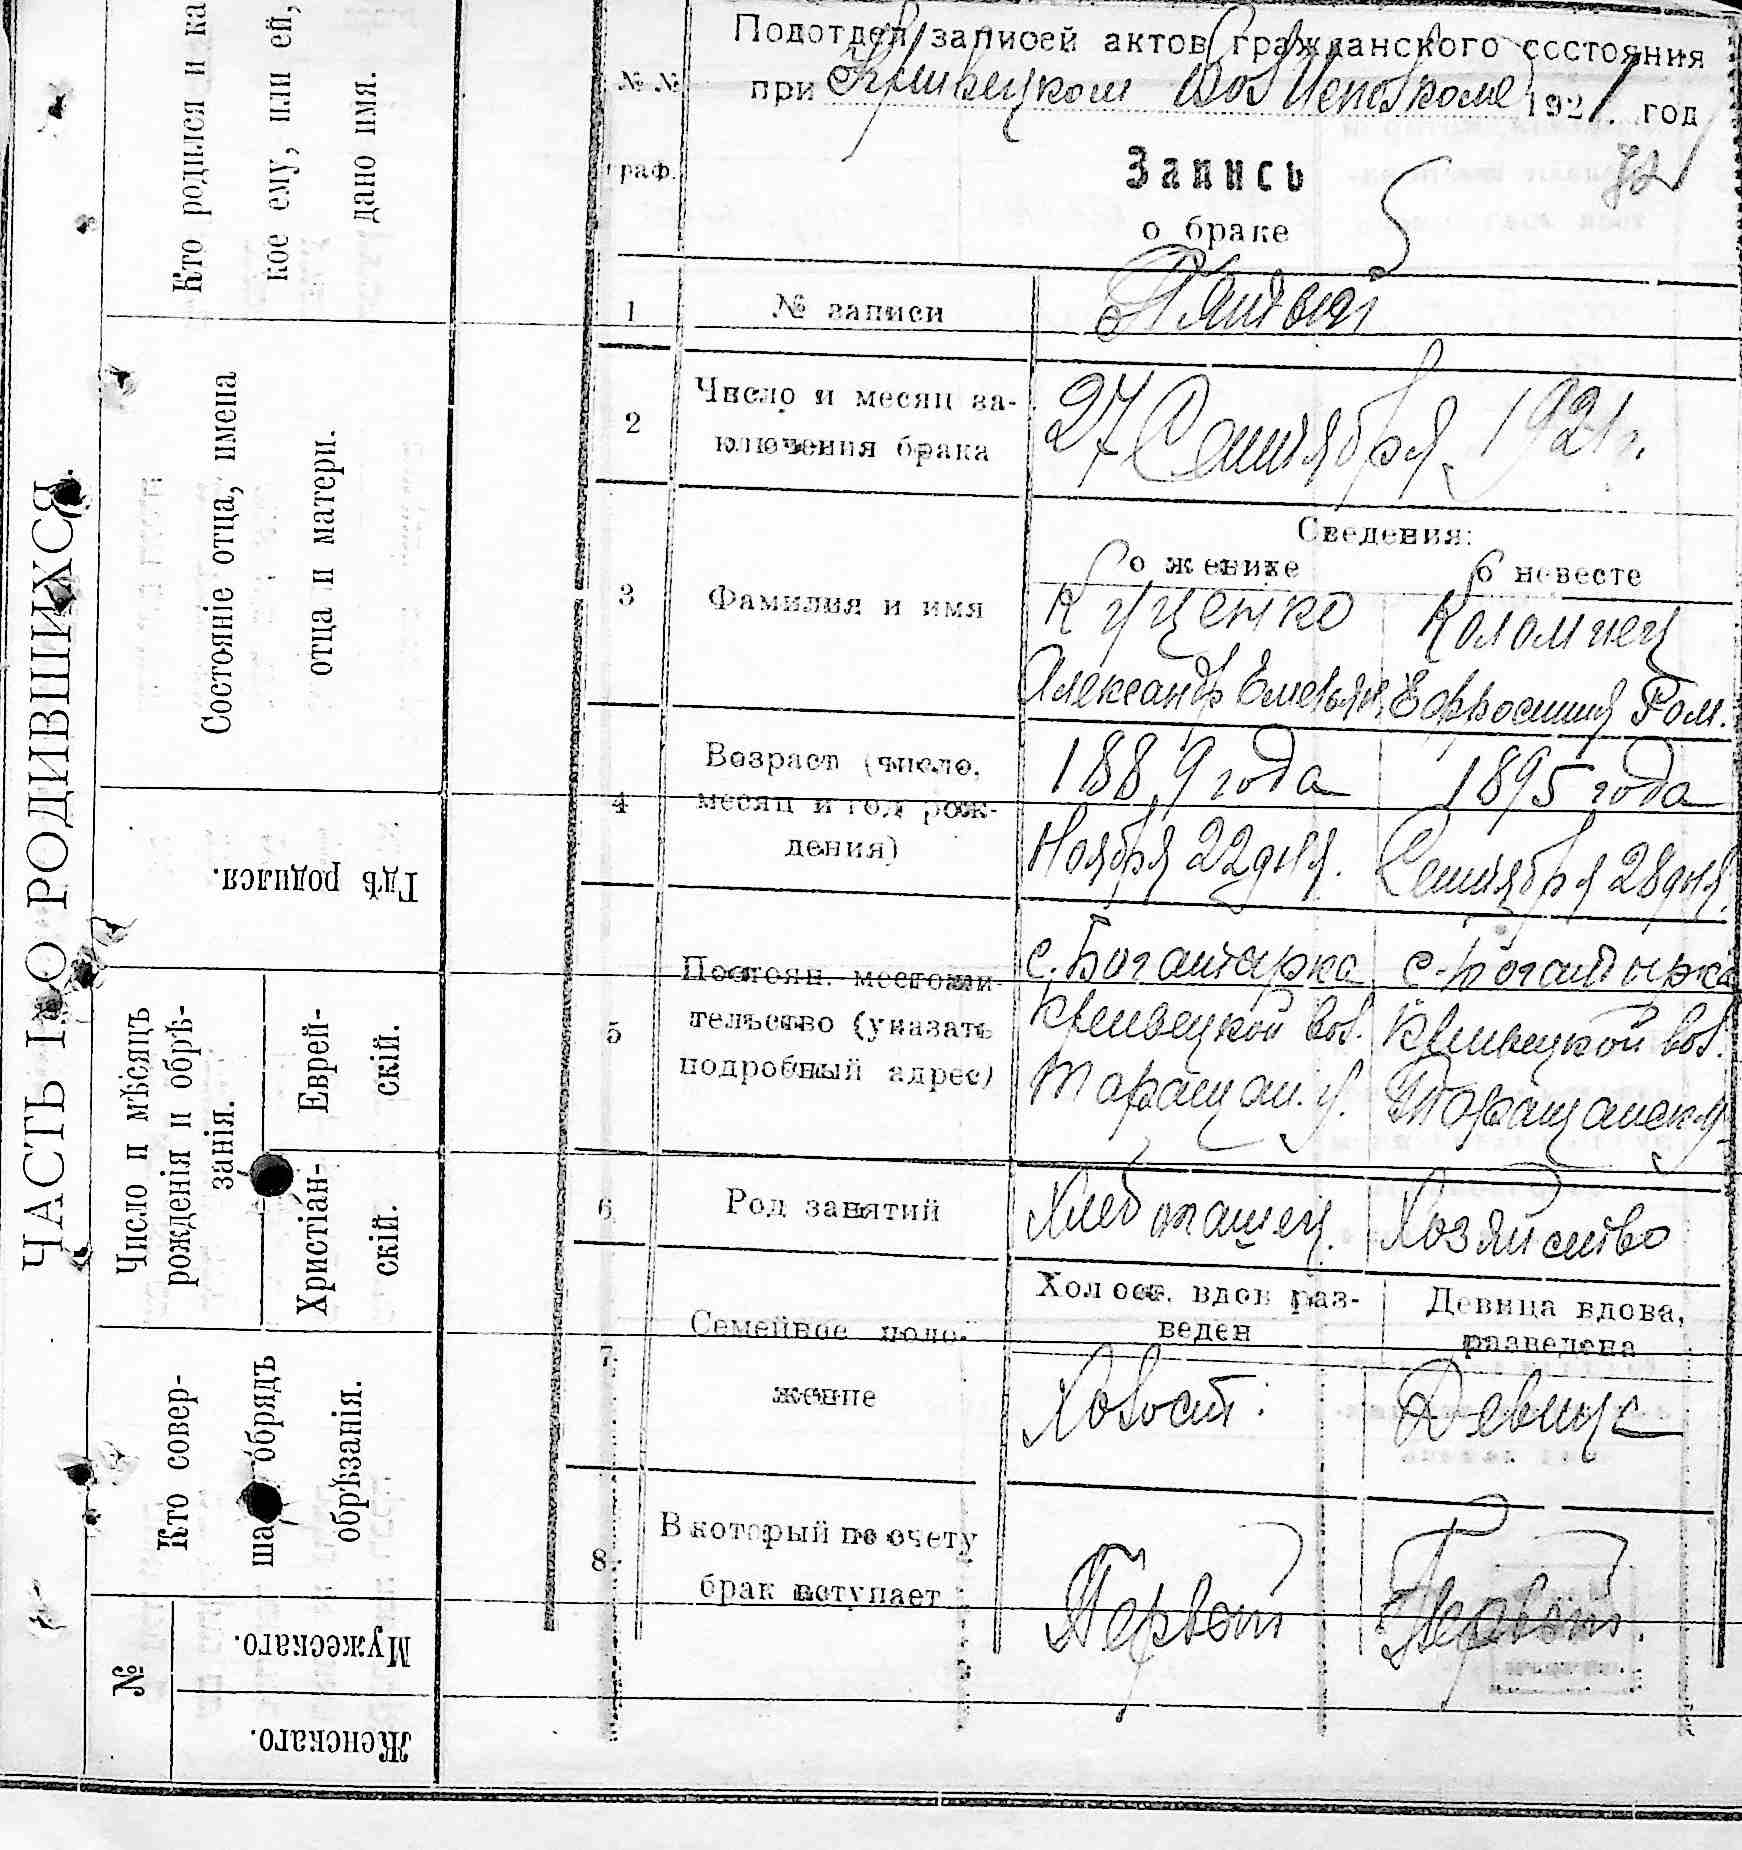 ЧАСТЬ О РОДИВШИХСЯ.
Кто родился и ка
кое ему, или ей,
дано имя.
Состояніе отца, имена
отца и матери.
Гдѣ родился.
Число и мѣсяцъ
рожденія и обрѣ-
занія.
Еврей-
скій.
Христіан-
скій.
Кто совер-
обрядъ
обрѣзанія.
№
Мужескаго.
Женскаго.
Подотдел записей актов гражданского состояния
№ № при Кривецком Вол Исполкоме 1921. год
граф.
Запись
о браке 5
1 № записи Пятый
2 Число и месяц за-
ключения брака
27 Сентября 1921 г.
Сведения:
о женихе о невесте
3 Фамилия и имя
Куценко Коломиец
Александр Емельян. Ефросиния Ром.
4 Возраст (число,
месяц и год рож-
дения)
1889 года 1895 года
Ноября 22 дня. Сентября 28 дня.
5 Постоян. местожи-
тельство (указать
подробный адрес)
с. Богатырка с. Богатырка
Кривецкой вол. Кривецкой вол.
Таращан. у. Таращанск у.
6 Род занятий
Хлебопашец. Хозяйство
Холост, вдов раз- Девица вдова,
веден разведена
7. Семейное поло-
жение
Холост: Девица
8. В который по счету
брак вступает
Первый Первый.